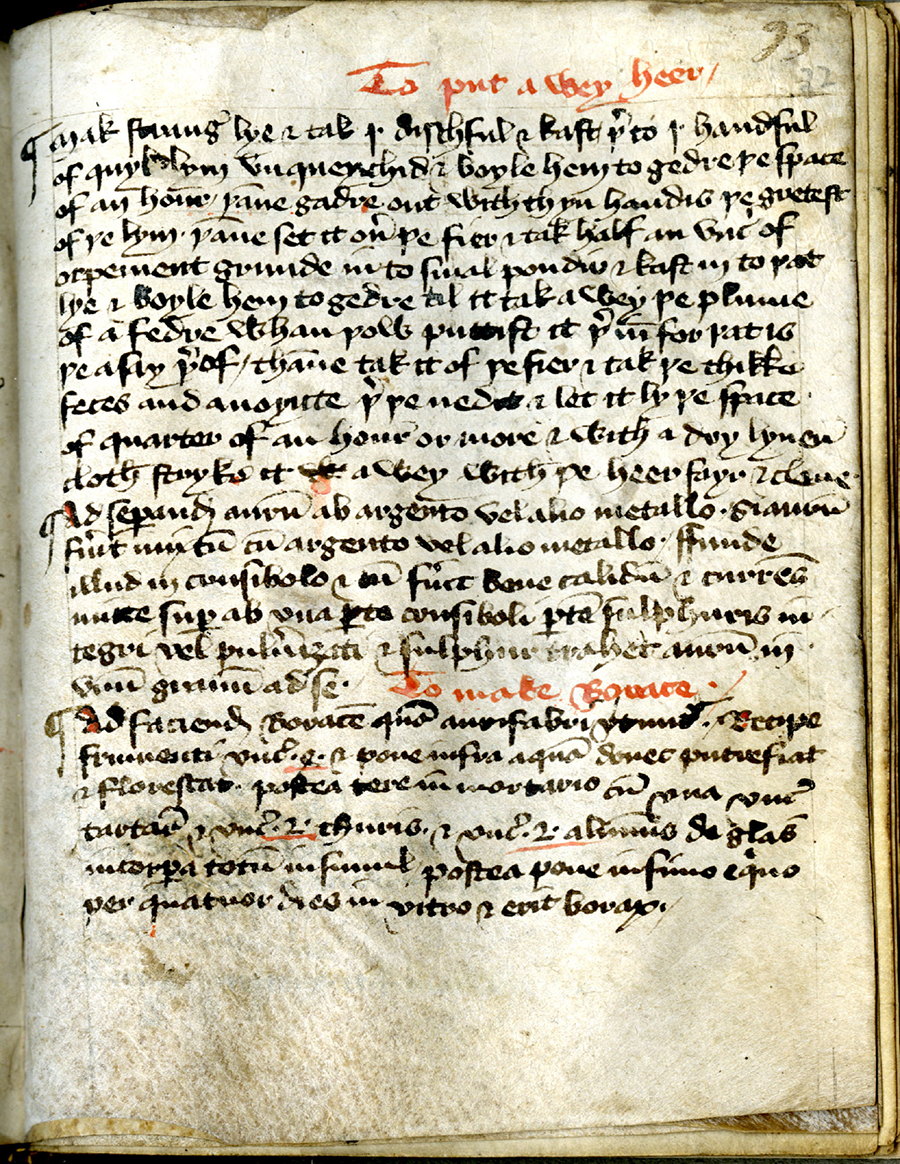 93
22
To put a wey heer /
¶ Mak strong lye & tak j dischful & kast þ'to j handful
of quyk lym vnquenchid & boyle hem to gedre þe space
of an hour / þāne gadre out with thyn handis þe gretest
of þe lym · þāne set it on þe fier & tak half an vnc of
orpement grunde in to smal poudir & kast in to þat
lye & boyle hem to gedre til it tak a wey þe plume
of a fedre whan þow puttist it þ' in for þat is
þe asay þ'of / thāne tak it of þe fier & tak þe thikke
feces and anoynte þ' þe nedit & let it ly þe space
of quarter of an hour or more & with a dry lynen
cloth stryke it a wey with þe heer fayr & clene
¶ Ad separand aurū ab argento vel alio metallo · Si aurū
fu'it mixtū cū argento vel alio metallo · ffunde
illud in consibolo & cū fu'it bene calidū & currens
mitte sup ab vna pte consiboli ptē sulphuris in
tegri vel pulu'izati & sulphur trahet aurū in
vnū granū ad se · To make Borace ·
¶ Ad faciend Boracē quā aurifabri vtunt' · Recipe
frumenti vnc · & pone infra aquā donec putrefiat
& florescat · postea tere in mortario cū vna vnc'
tartar' & vnc' · 2 · thuris · & vnc' · 2 · aluminis de glas
incorpa totū insimul postea pone in fimo equo
per quatuor dies in vitro & erit borax ·